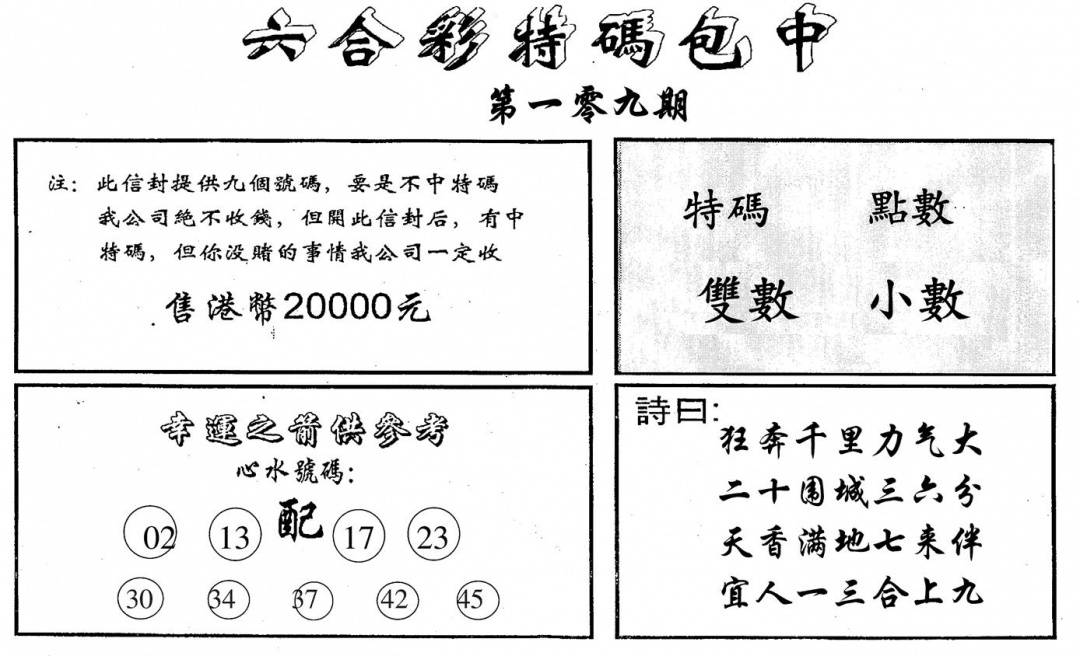 六合彩特碼包中
第一零九期
注：此信封提供九個號碼，要是不中特碼
我公司絕不收錢，但開此信封后，有中
特碼，但你没賭的事情我公司一定收
售港幣20000元
特碼 點數
雙數 小數
幸運之箭供參考
心水號碼：
02 13 配 17 23
30 34 37 42 45
詩曰：
狂奔千里力气大
二十围城三六分
天香满地七来伴
宜人一三合上九